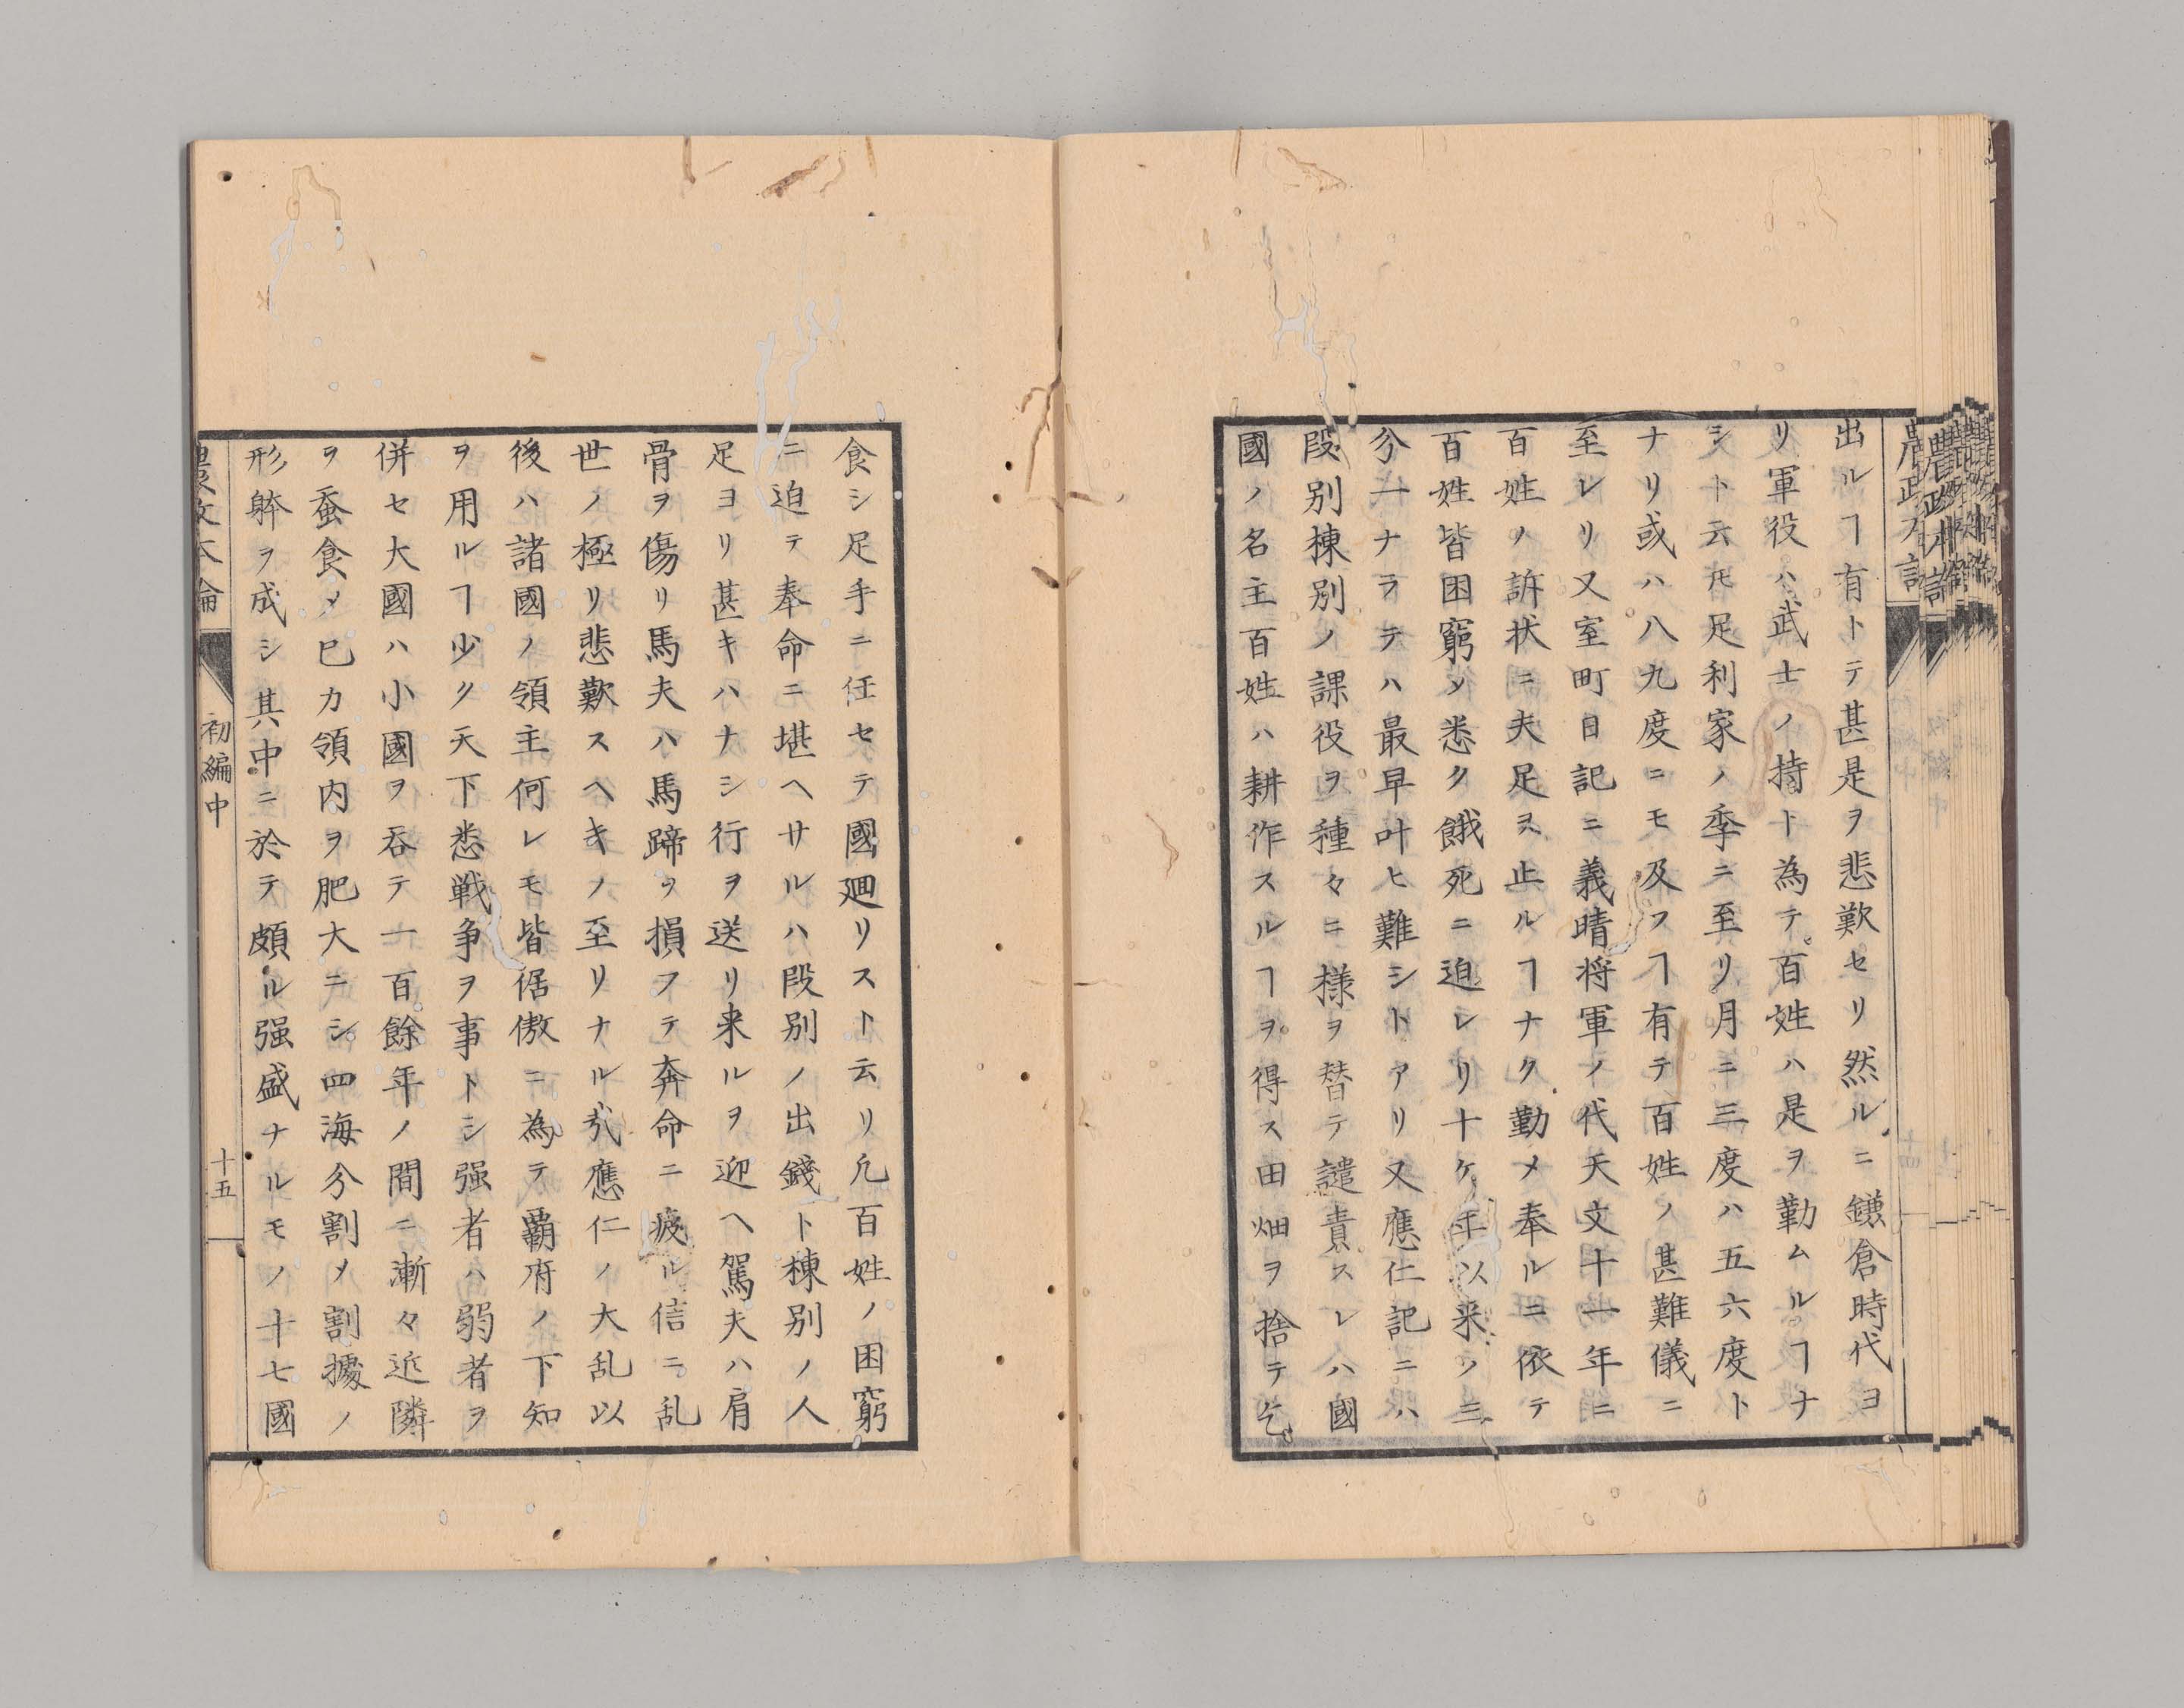 出ルヿ有トテ甚是ヲ悲歎セリ然ルニ鎌倉時代ヨ
リ軍役ハ武士ノ持ト為テ百姓ハ是ヲ勤ムルヿナ
シト云𪜈足利家ノ季ニ至リ月ニ三度ハ五六度ト
ナリ或ハ八九度ニモ及フヿ有テ百姓ノ甚難儀ニ
至レリ又室町日記ニ義晴将軍ノ代天文十一年ニ
百姓ノ訴状ニ夫足ヲ止ルヿナク勤メ奉ルニ依テ
百姓皆困窮〆悉ク餓死ニ迫レリ十ケ年以来ノ三
分一ナラテハ最早叶ヒ難シトアリ又應仁記ニハ
段別棟別ノ課役ヲ種々ニ様ヲ替テ譴責スレハ國
國ノ名主百姓ハ耕作スルヿヲ得ス田畑ヲ捨テ乞
食シ足手ニ任セテ國廻リスト云リ凡百姓ノ困窮
ニ迫テ奉命ニ堪ヘサルハ段別ノ出錢ト棟別ノ人
足ヨリ甚キハナシ行ヲ送リ来ルヲ迎ヘ駕夫ハ肩
骨ヲ傷リ馬夫ハ馬蹄ヲ損フテ奔命ニ疲ル信ニ乱
世ノ極リ悲歎スヘキノ至リナル哉應仁ノ大乱以
後ハ諸國ノ領主何レモ皆倨傲ニ為テ覇府ノ下知
ヲ用ルヿ少ク天下悉戦争ヲ事トシ强者ハ弱者ヲ
併セ大國ハ小國ヲ吞テ一百餘年ノ間ニ漸々近隣
ヲ蚕食〆已カ領内ヲ肥大ニシ四海分割〆割據ノ
形躰ヲ成シ其中ニ於テ頗ル强盛ナルモノ十七國
農政本論
初編中
十五